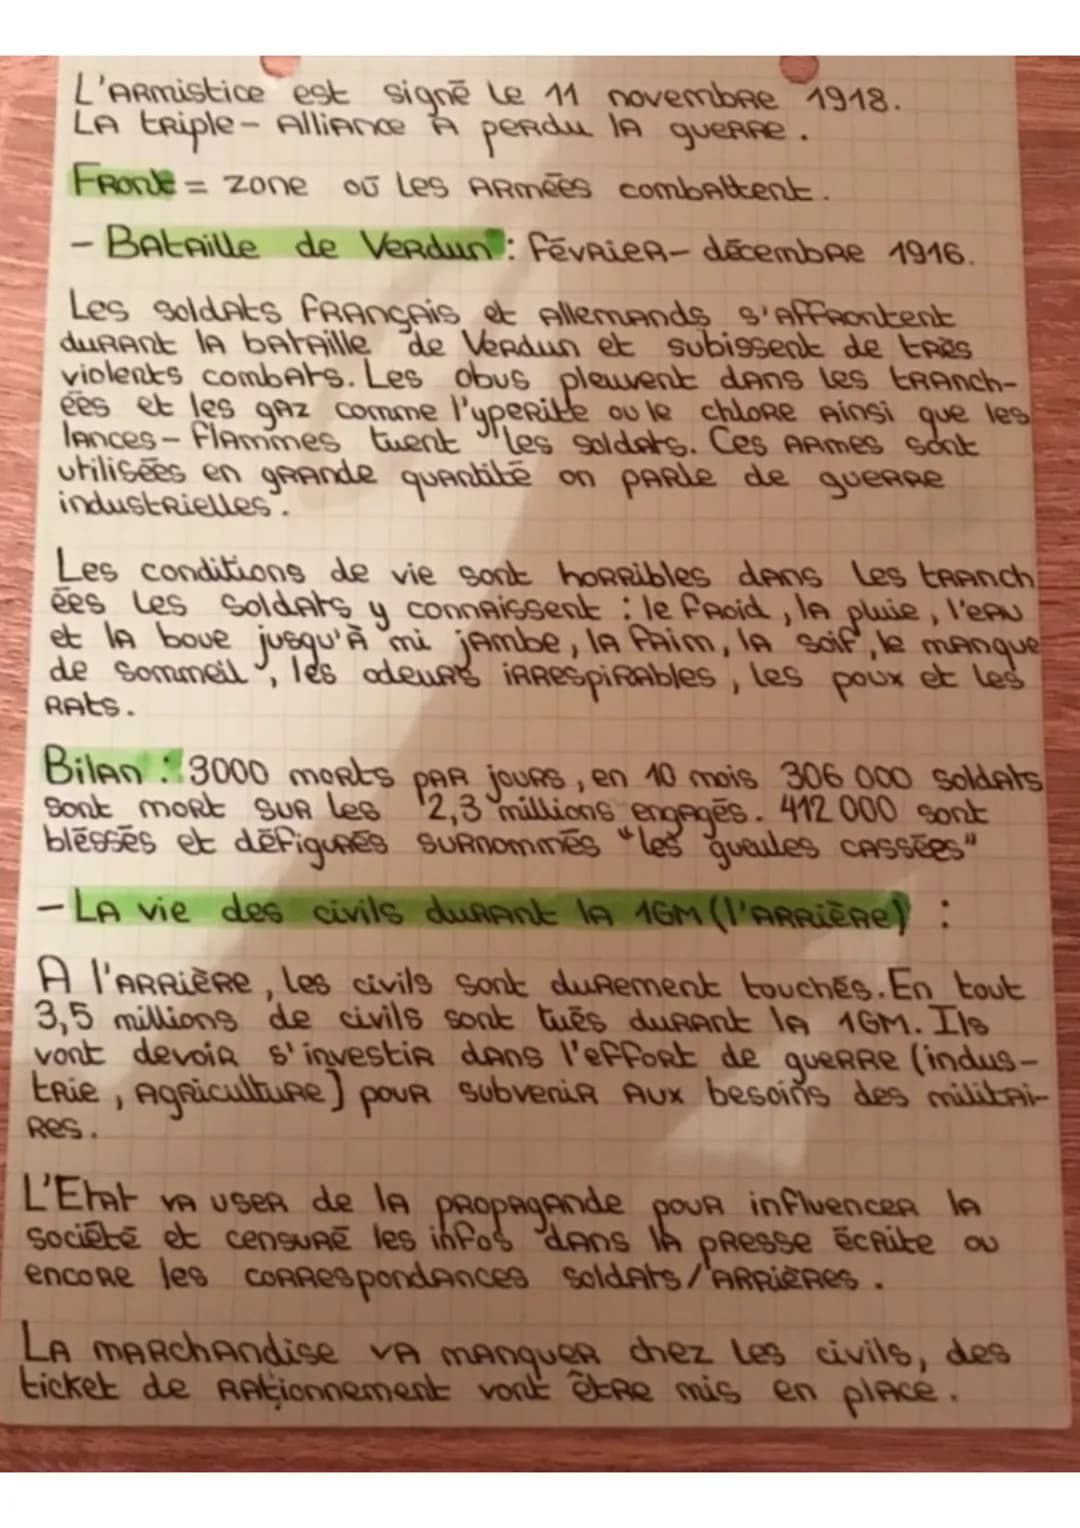 L'Armistice est signé le 11 novembre 1918.
La triple-Alliance à perdu la guerre.
Front = zone où les armées combattent.
- Bataille de Verdun : février-décembre 1916.
Les soldats français et allemands s'affrontent
durant la bataille de Verdun et subissent de très
violents combats. Les obus pleuvent dans les tranch-
ées et les gaz comme l'yperite ou le chlore ainsi que les
lances-flammes tuent les soldats. Ces armes sont
utilisées en grande quantité on parle de guerre
industrielles.
Les conditions de vie sont horribles dans les tranch
ées les soldats y connaissent : le froid, la pluie, l'eau
et la boue jusqu'à mi jambe, la faim, la soif, le manque
de sommeil, les odeurs irrespirables, les poux et les
rats.
Bilan : 3000 morts par jours, en 10 mois 306 000 soldats
sont mort sur les 2,3 millions engagés. 412 000 sont
bléssés et défigurés surnommés "les gueules cassées"
- La vie des civils durant la 1GM (l'arrière) :
A l'arrière, les civils sont durement touchés. En tout
3,5 millions de civils sont tués durant la 1GM. Ils
vont devoir s'investir dans l'effort de guerre (indus-
trie, agriculture) pour subvenir aux besoins des militai-
res.
L'Etat va user de la propagande pour influencer la
société et censuré les infos dans la presse écrite ou
encore les correspondances soldats/arrières.
La marchandise va manquer chez les civils, des
ticket de rationnement vont être mis en place.